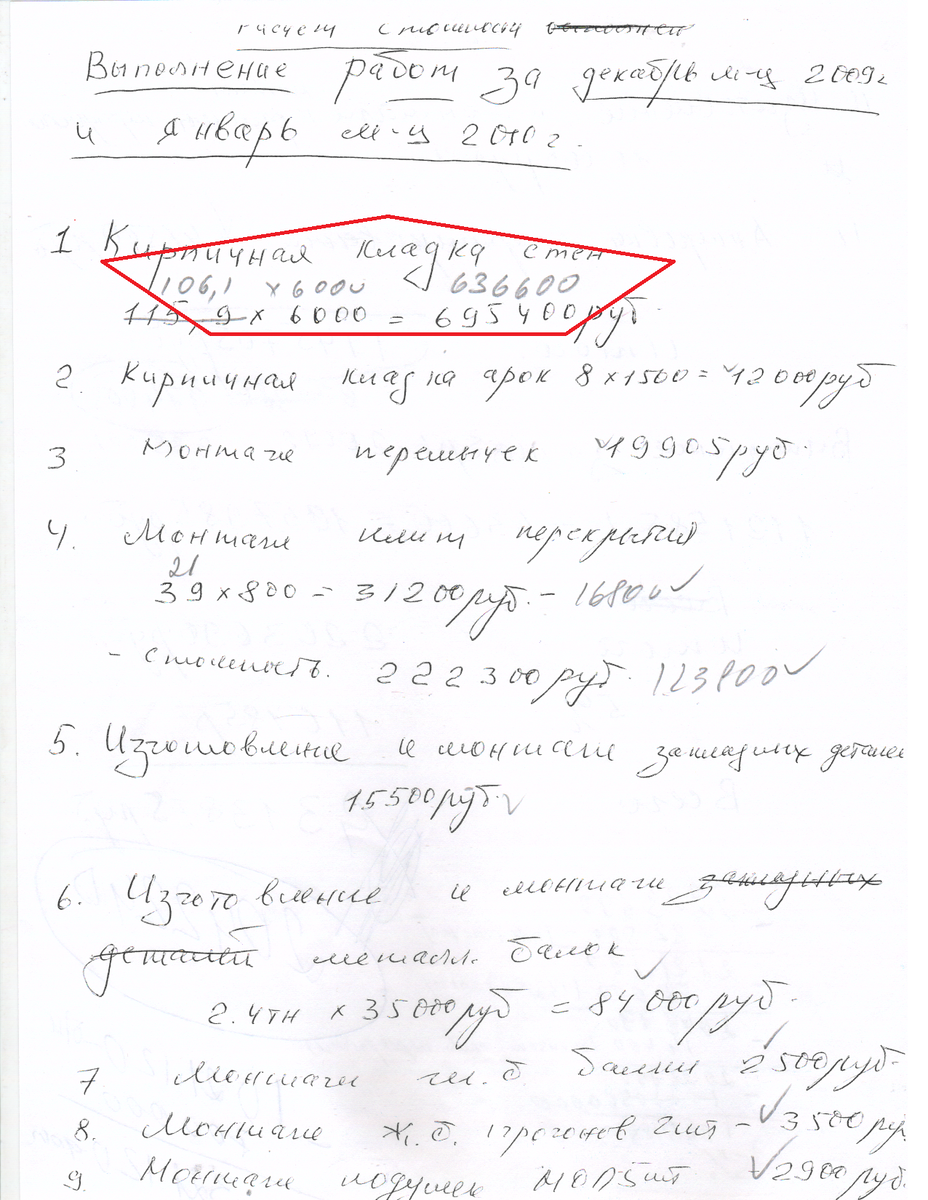 расчет стоимости
Выполнение работ за декабрь м-ц 2009г
и январь м-ц 2010г.
1 Кирпичная кладка стен
106,1 х 6000 < 636600
115,9 х 6000 = 695400 руб.
2. Кирпичная кладка арок 8 х 1500 = 12000 руб
3 Монтаж перемычек 19905 руб.
4. Монтаж плит перекрытия
21
39 х 800 = 31200 руб. - 16800
- стоимость. 222300 руб. 123900
5. Изготовление и монтаж закладных деталей
15500 руб.
6. Изготовление и монтаж закладных
деталей металл. балок
2.4тн х 35000 руб = 84000 руб.
7 Монтаж ж.б. балки 2500 руб.
8. Монтаж ж.б. прогонов 2шт - 3500 руб
9. Монтаж подушек 2900 руб.